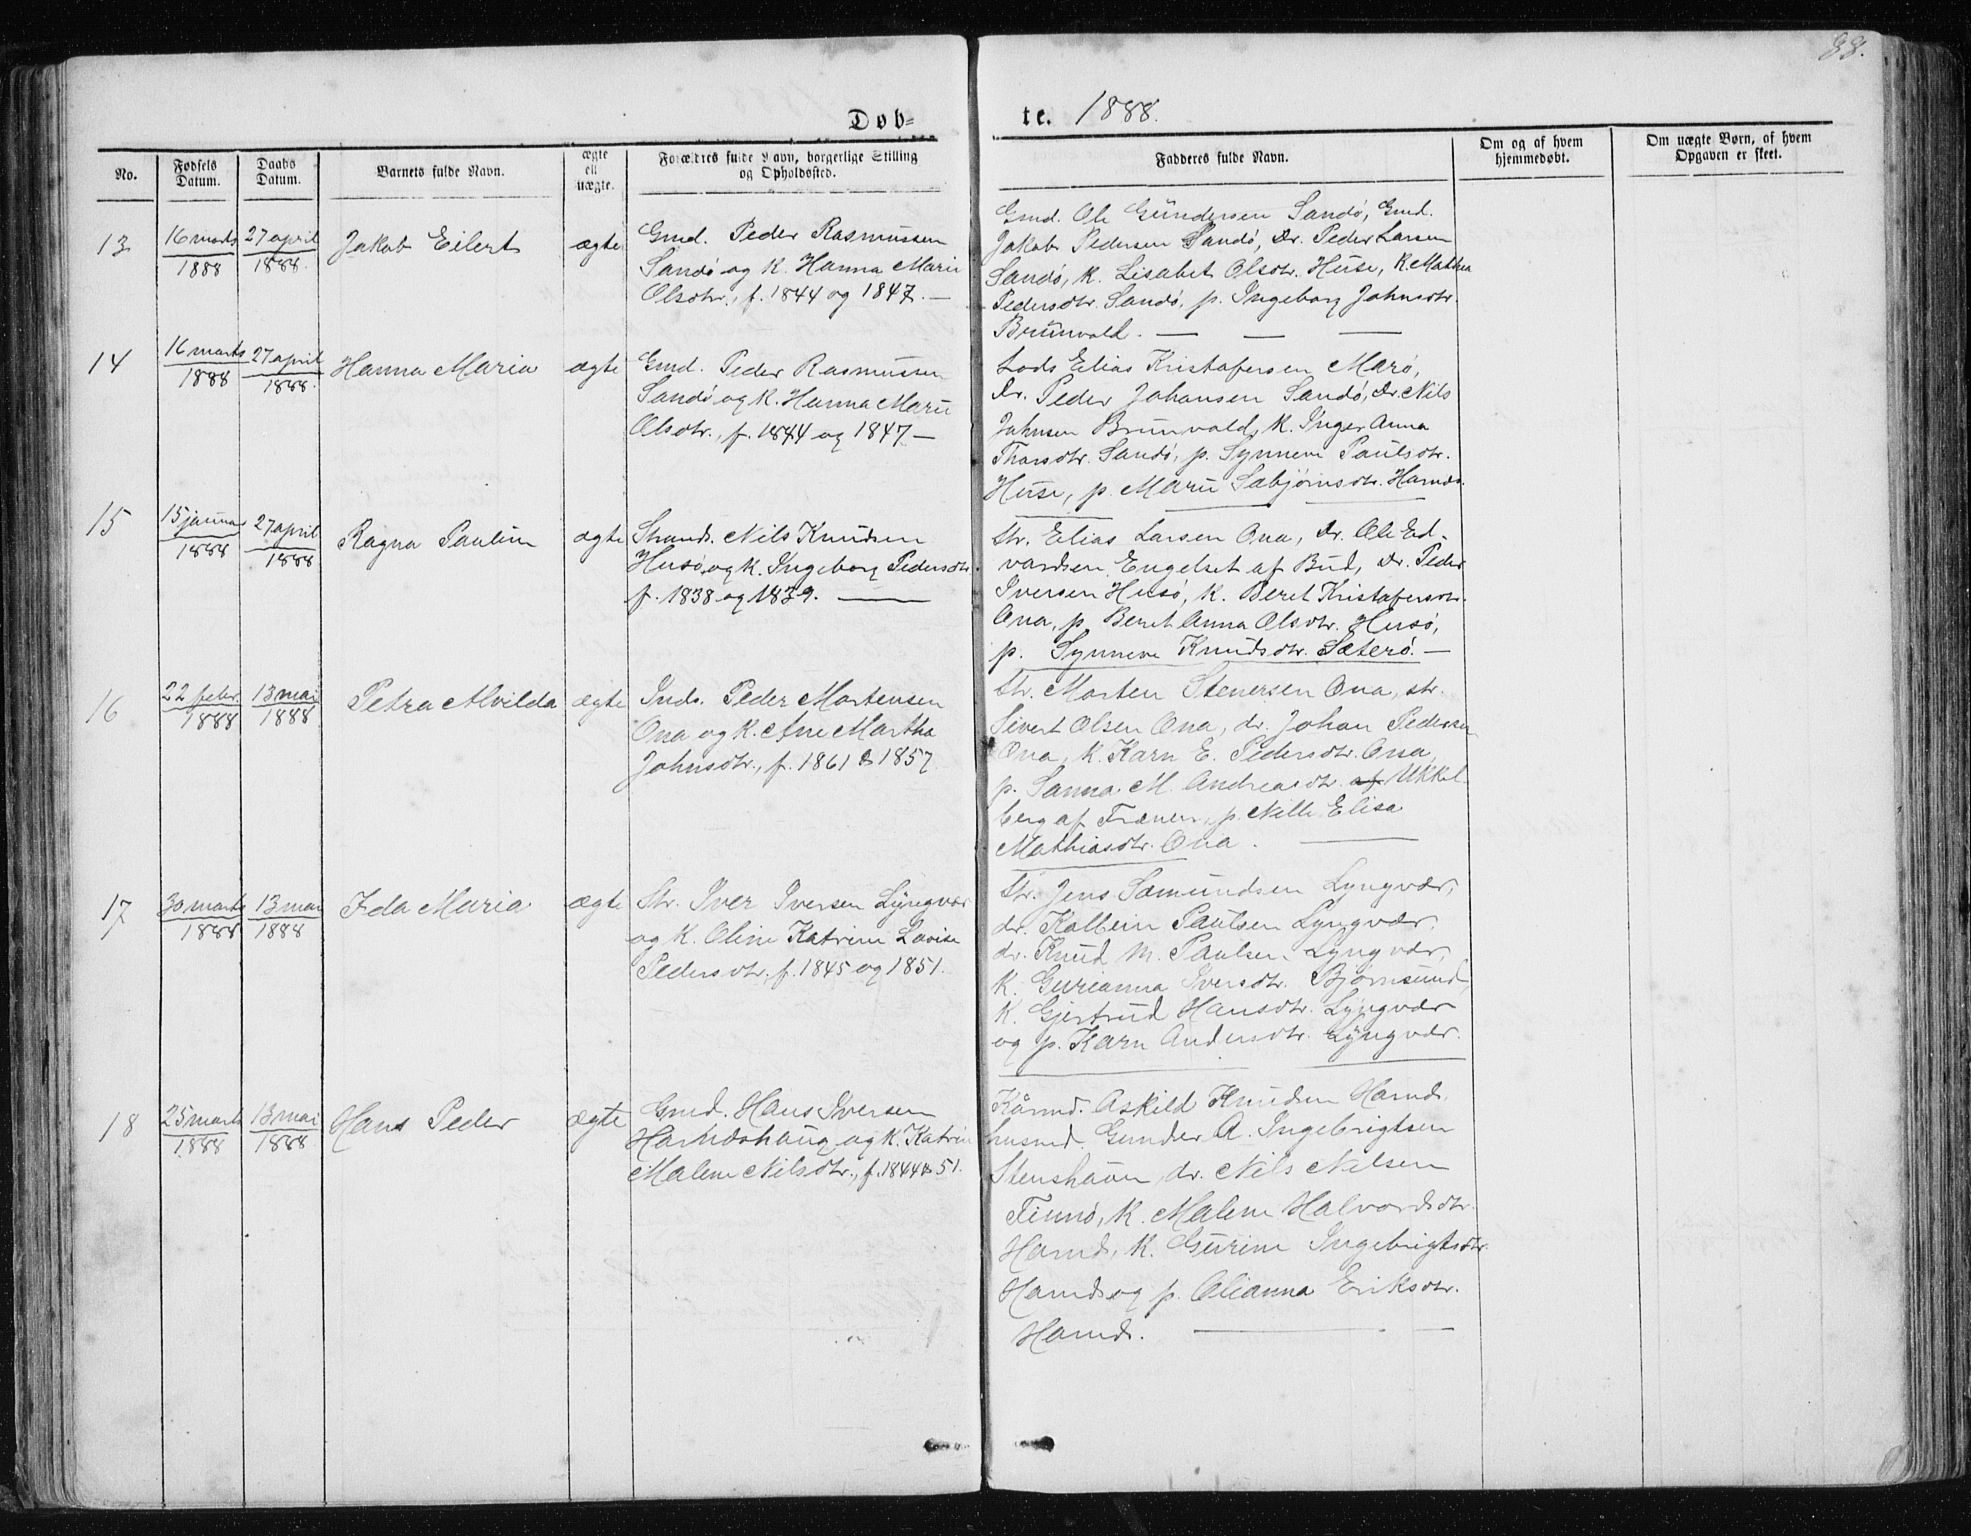 88.
Døb=
te. 1888.
No.
Fødsels Datum.
Daabs Datum.
Barnets fulde Navn.
ægte ell uægte.
Forældres fulde Navn, borgerlige Stilling og Opholdssted.
Fadderes fulde Navn.
Om og af hvem hjemmedøbt.
Om uægte Børn, af hvem Opgaven er skeet.
13
16 marts 1888
27 april 1888.
Jakob Eilert
ægte
Gmd. Peder Rasmussen
Sandø og K. Hanna Marie
Olsdtr., f. 1844 og 1847. —
Gmd. Ole Gundersen Sandø, Gmd.
Jakob Pedersen Sandø, Dr. Peder Larsen
Sandø, K. Lisabet Olsdtr. Huse, K. Mathea
Pedersdtr. Sandø, p. Ingeborg Johnsdtr.
Brunvold. — — —
14
16 marts 1888
27 april 1888.
Hanna Maria
ægte
Gmd. Peder Rasmussen
Sandø og K. Hanna Marie
Olsdtr., f. 1844 og 1847 —
Lods Elias Kristofersen Marø,
Dr. Peder Johansen Sandø, Dr. Nils
Johnsen Brunvold, K. Inger Anna
Thorsdtr. Sandø, p. Synneve Paulsdtr.
Huse, p. Marie Sæbjørnsdtr. Harnæs.
15
15 januar 1888
27 april 1888
Ragna Pauline
ægte
Strands. Nils Knudsen
Husø og K. Ingeborg Pedersdtr.
f. 1838 og 1839. —
Str. Elias Larsen Ona, Dr. Ole Ed-
vardsen Engelset af Bud, Dr. Peder
Iversen Husø, K. Beret Kristofersdtr.
Ona, p. Beret Anna Olsdtr. Husø,
p. Synneve Knudsdtr. Sæterø. —
16
22 febr. 1888
13 mai 1888
Petra Alvilda
ægte
Inds. Peder Mortensen
Ona og K. Ane Martha
Johnsdtr., f. 1861 & 1857.
Str. Morten Stenersen Ona, str.
Sivert Olsen Ona, dr. Johan Pedersen
Ona, K. Karn E. Pedersdtr. Ona,
p. Sanna M. Andreasdtr. af Mikkel
berg af Frænen, p. Nille Elisa
Mathiasdtr. Ona. —
17
30 marts 1888
13 mai 1888
Ida Maria
ægte
Str. Iver Iversen Lyngvær
og K. Oline Katrine Lovise
Pedersdtr., f. 1845 og 1851.
Str. Jens Sæmundsen Lyngvær,
dr. Kolbein Paulsen Lyngvær,
dr. Knud M. Paulsen Lyngvær,
K. Gurianna Iversdtr. Bjørnsund,
K. Gjertrud Hansdtr. Lyngvær
og p. Karn Andersdtr. Lyngvær.
18
25 marts 1888
13 mai 1888
Hans Peder
ægte
Gmd. Hans Iversen
Harnæshaug og K. Katrine
Malene Nilsdtr., f. 1844 & 51.
Kårmd. Askild Knudsen Harnæs,
husmd. Gunder A. Ingebrigtsen
Stenshavn, dr. Nils Nilsen
Finnø, K. Malene Halvordsdtr.
Harnæs, K. Gurine Ingebrigtsdtr.
Harnæs og p. Olianna Eriksdtr.
Harnæs. —